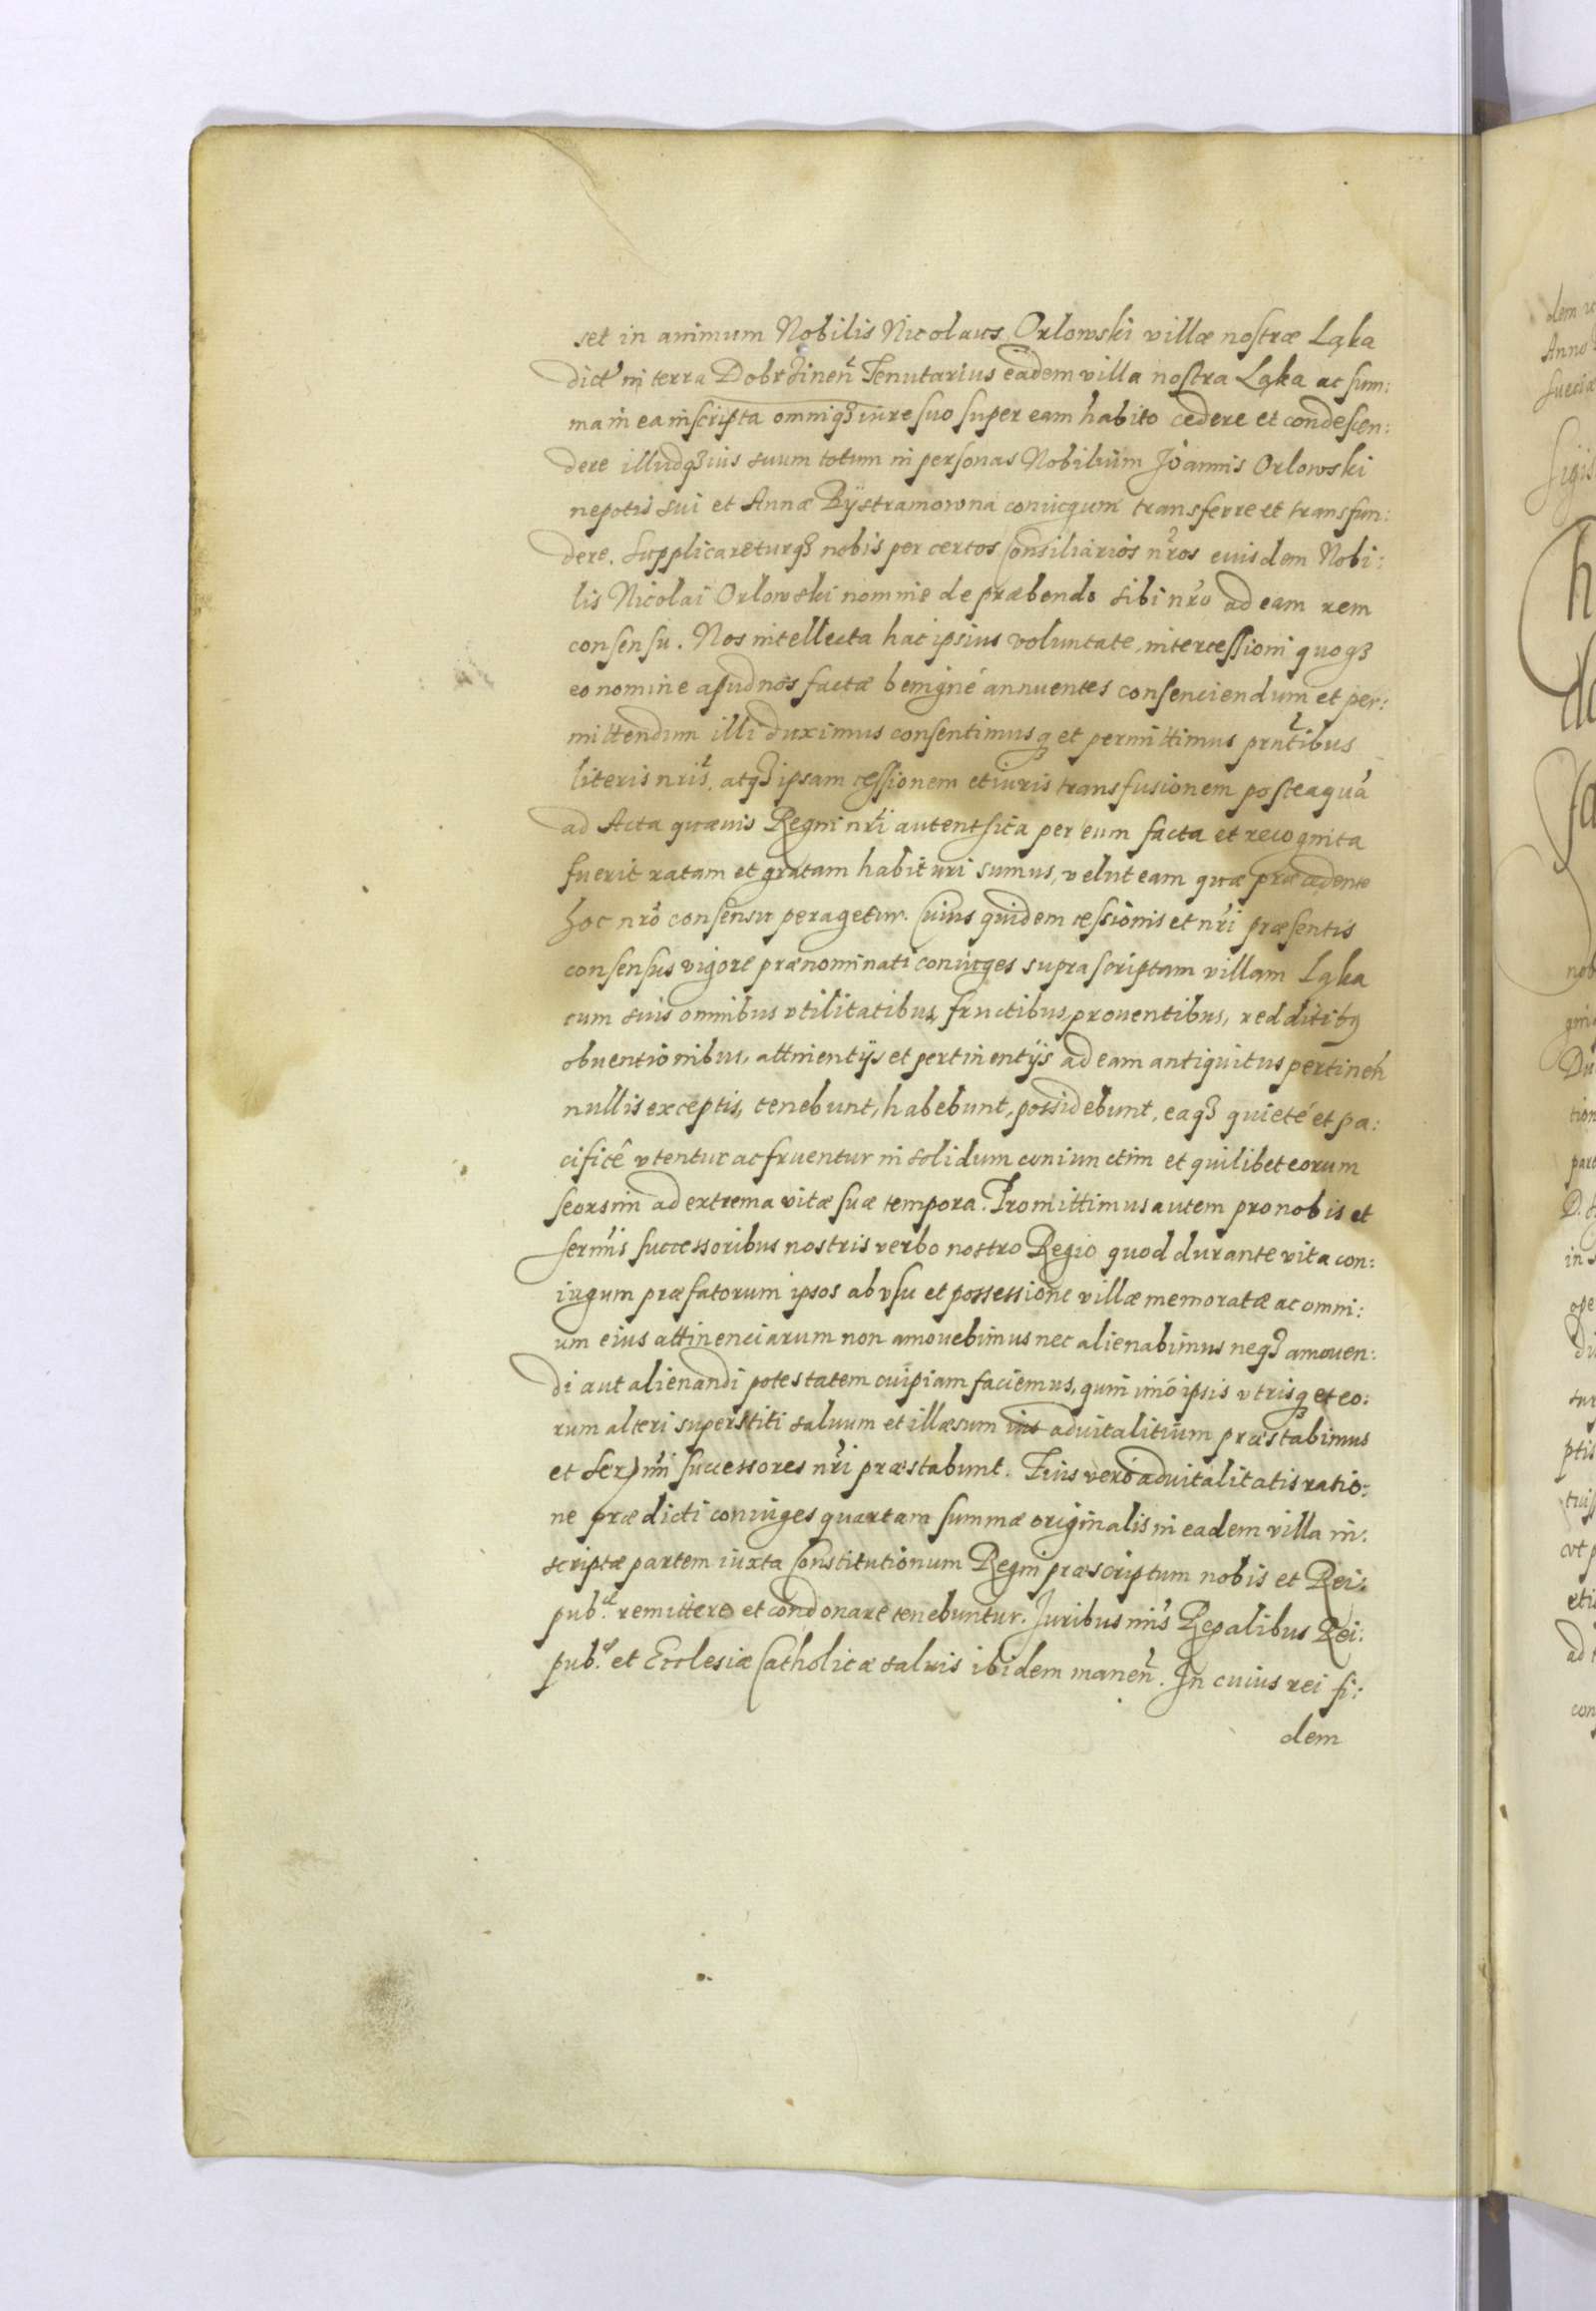 set in animum Nobilis Nicolaus Orlowski villæ nostræ Ląka
dict' in terra Dobrzinen̄ Tenutarius eadem villa nostra Ląka ac sum:
ma in ea inscripta omniqȝ iure suo super eam habito cedere et condescen:
dere illudqȝ ius suum totum in personas Nobilium Joannis Orlowski
nepotis sui et Annæ Bÿstramowna coniugum transferre et transfun:
dere. Supplicareturqȝ nobis per certos Consiliarios nr̄os euisdem Nobi:
lis Nicolai Orlowski nomine de præbendo sibi nr̄o ad eam rem
consensu. Nos intellecta hac ipsius voluntate, intercessioni quoqȝ
eo nomine apud nos factæ benigné annuentes consenciendum et per:
mittendum illi duximus consentimusqȝ et permittimus prn̄tibus
literis nr̄is, atqȝ ipsam cessionem et iuris transfusionem posteaquā
ad Acta quæuis Regni nr̄i autentsica per eum facta et recognita
fuerit ratam et gratam habituri sumus, velut eam quæ præcedente
hoc nr̄o consensu peragetur. Cuius quidem cessionis et nr̄i præsentis
consensus vigore prænominati coniuges supra scriptam villam Ląka
cum suis omnibus vtilitatibus, fructibus, prouentibus, redditibȝ
obuentionibus, attinentijs et pertinentijs ad eam antiquitus pertinen̄
nullis exceptis, tenebunt, habebunt, possidebunt, eaqȝ quieté et pa:
cificê vtentur ac fruentur in solidum coniunctim et quilibet eorum
seorsim ad extrema vitæ suæ tempora. Promittimus autem pro nobis et
serm̄is successoribus nostris verbo nostro Regio quod durante vita con:
iugum præfatorum ipsos ab vsu et possessione villæ memoratæ ac omni:
um eius attinenciarum non amouebimus nec alienabimus neqȝ amouen:
di aut alienandi potestatem cuipiam faciemus, quin imò ipsis vtrisqȝ et eo:
rum alteri superstiti saluum et illæsum ius aduitalitium præstabimus
et Serm̄i successores nr̄i præstabunt. Juis veró aduitalitatis ratio:
ne prædicti coniuges quartam summæ originalis in eadem villa in:
scriptæ partem iuxta Constitutionum Regni præscriptum nobis et Rei:
pub.cæ remittere et condonare tenebuntur. Juribus nr̄is Regalibus Rei:
pub.cæ et Ecclesiæ Catholicæ saluis ibidem manen̄. In cuius rei fi:
dem